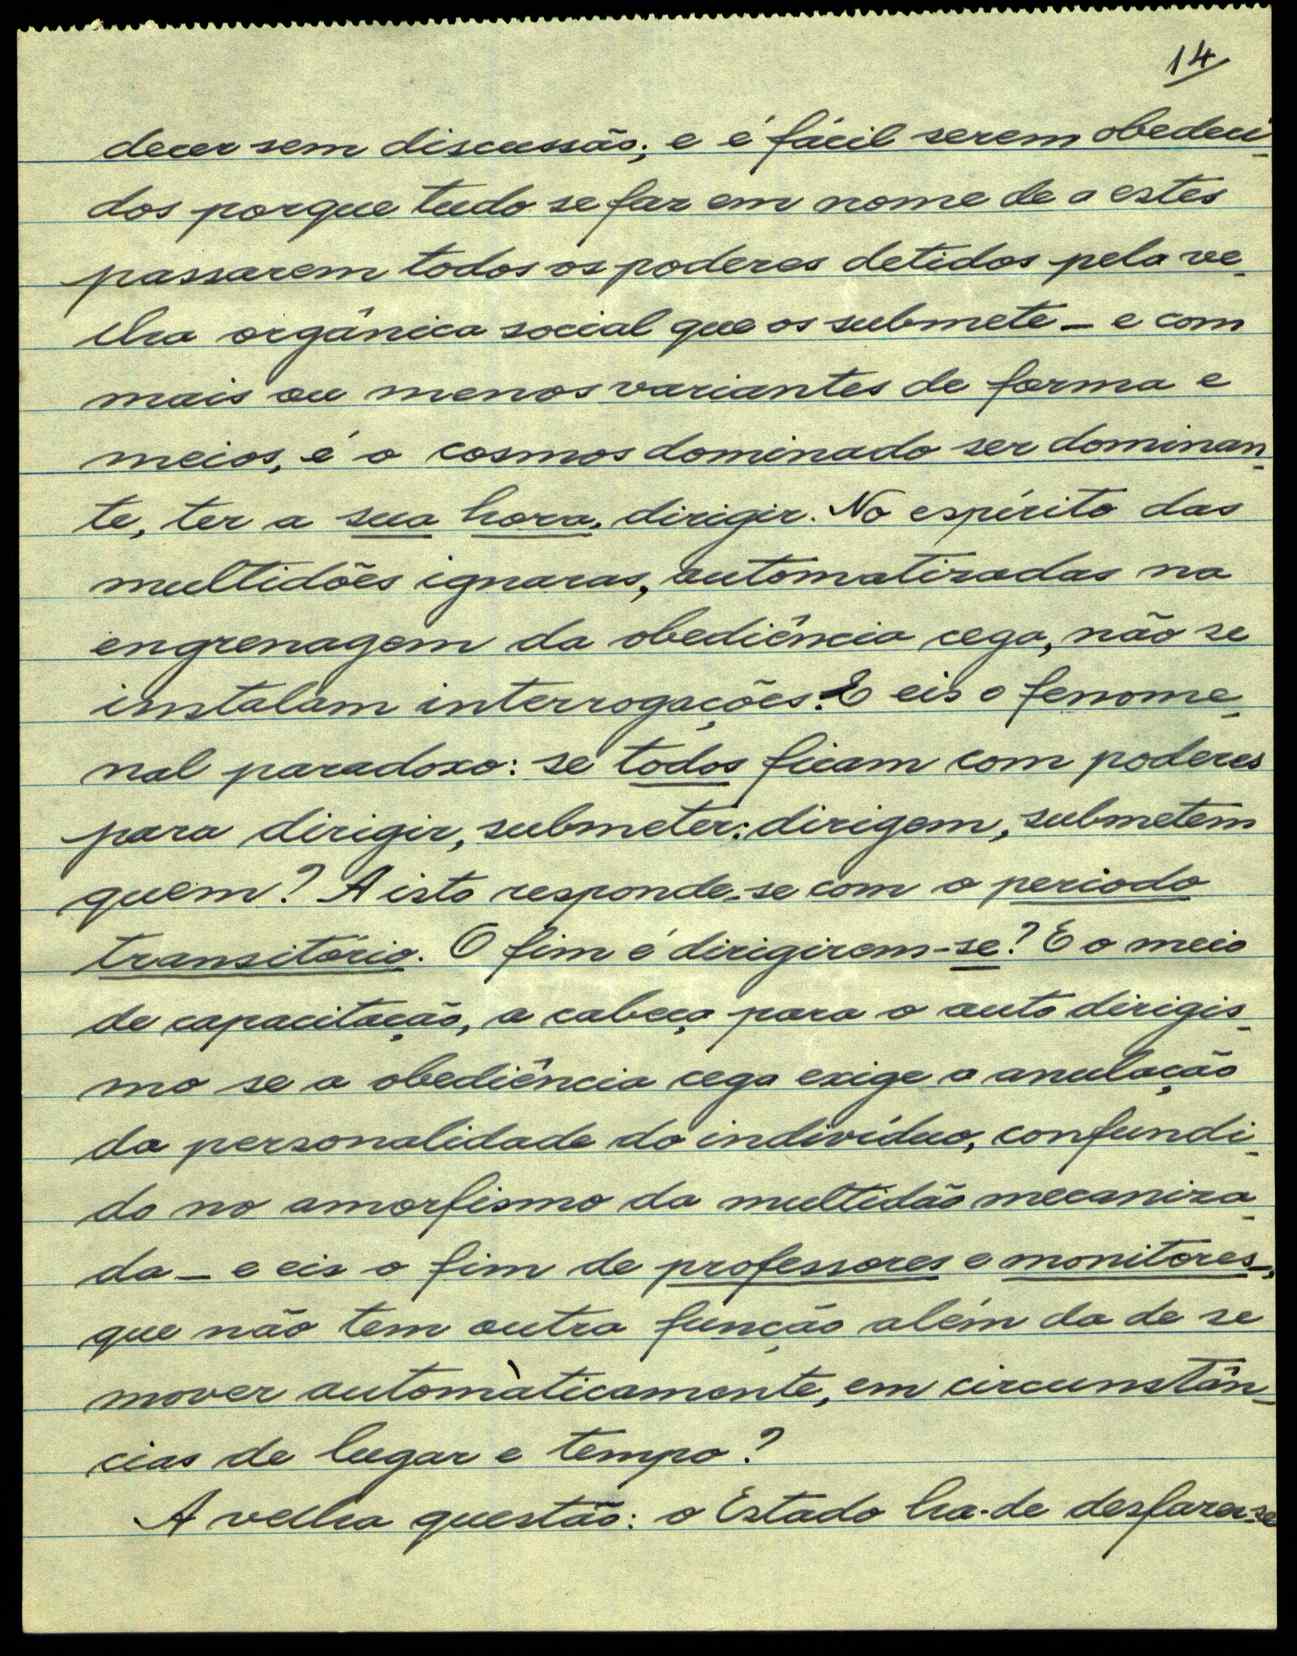 14
decer sem discussão; e é fácil serem obedeci-
dos porque tudo se faz em nome de a estes
passarem todos os poderes detidos pela ve-
lha orgânica social que os submete - e com
mais ou menos variantes de forma e
meios, é o cosmos dominado ser dominan-
te, ter a sua hora, dirigir. No espírito das
multidões ignaras, automatizadas na
engrenagem da obediência cega, não se
instalam interrogações. E eis o fenome-
nal paradoxo: se todos ficam com poderes
para dirigir, submeter: dirigem, submetem
quem? A isto responde-se com o periodo
transitório. O fim é dirigirem-se? E o meio
de capacitação, a cabeça para o auto dirigis-
mo se a obediência cega exige a anulação
da personalidade do indivíduo, confundi-
do no amorfismo da multidão mecaniza-
da - e eis o fim de professores e monitores,
que não tem outra função além da de se
mover automàticamente, em circunstân-
cias de lugar e tempo?
A velha questão: o Estado ha-de desfazer-se